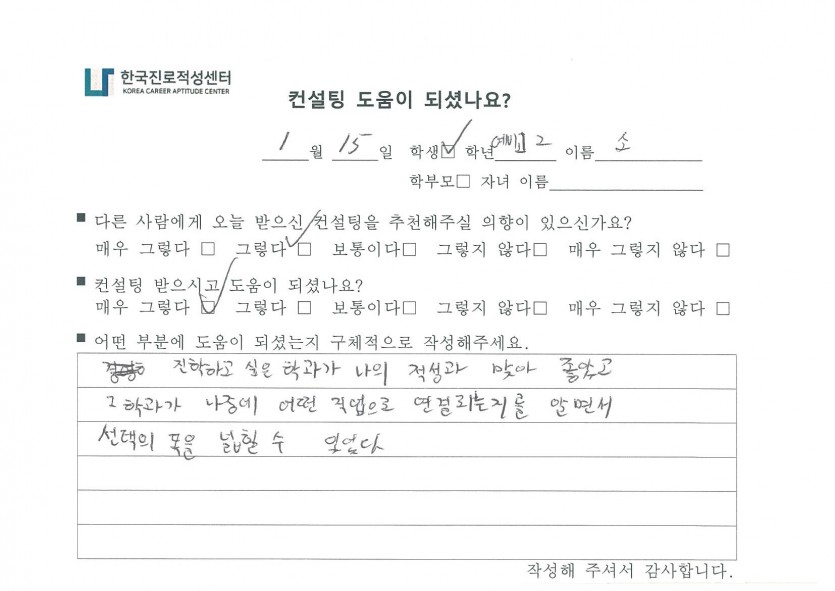 한국진로적성센터
KOREA CAREER APTITUDE CENTER
컨설팅 도움이 되셨나요?
1월 15일 학생☑ 학년 예비고2 이름 소
학부모□ 자녀 이름
■ 다른 사람에게 오늘 받으신 컨설팅을 추천해주실 의향이 있으신가요?
매우 그렇다 □ 그렇다 ☑ 보통이다□ 그렇지 않다□ 매우 그렇지 않다 □
■ 컨설팅 받으시고 도움이 되셨나요?
매우 그렇다 ☑ 그렇다 □ 보통이다□ 그렇지 않다□ 매우 그렇지 않다 □
■ 어떤 부분에 도움이 되셨는지 구체적으로 작성해주세요.
진학하고 싶은 학과가 나의 적성과 맞아 좋았고
그 학과가 나중에 어떤 직업으로 연결되는지를 알면서
선택의 폭을 넓힐 수 있었다
작성해 주셔서 감사합니다.